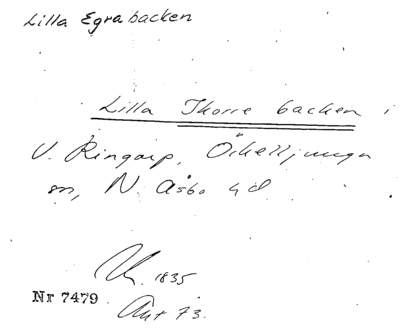 Lilla Egrabacken
Lilla Ikorre backen i
V. Ringarp, Örkelljunga
sn, N Åsbo hd
1835
Nr 7479
Ant 73.